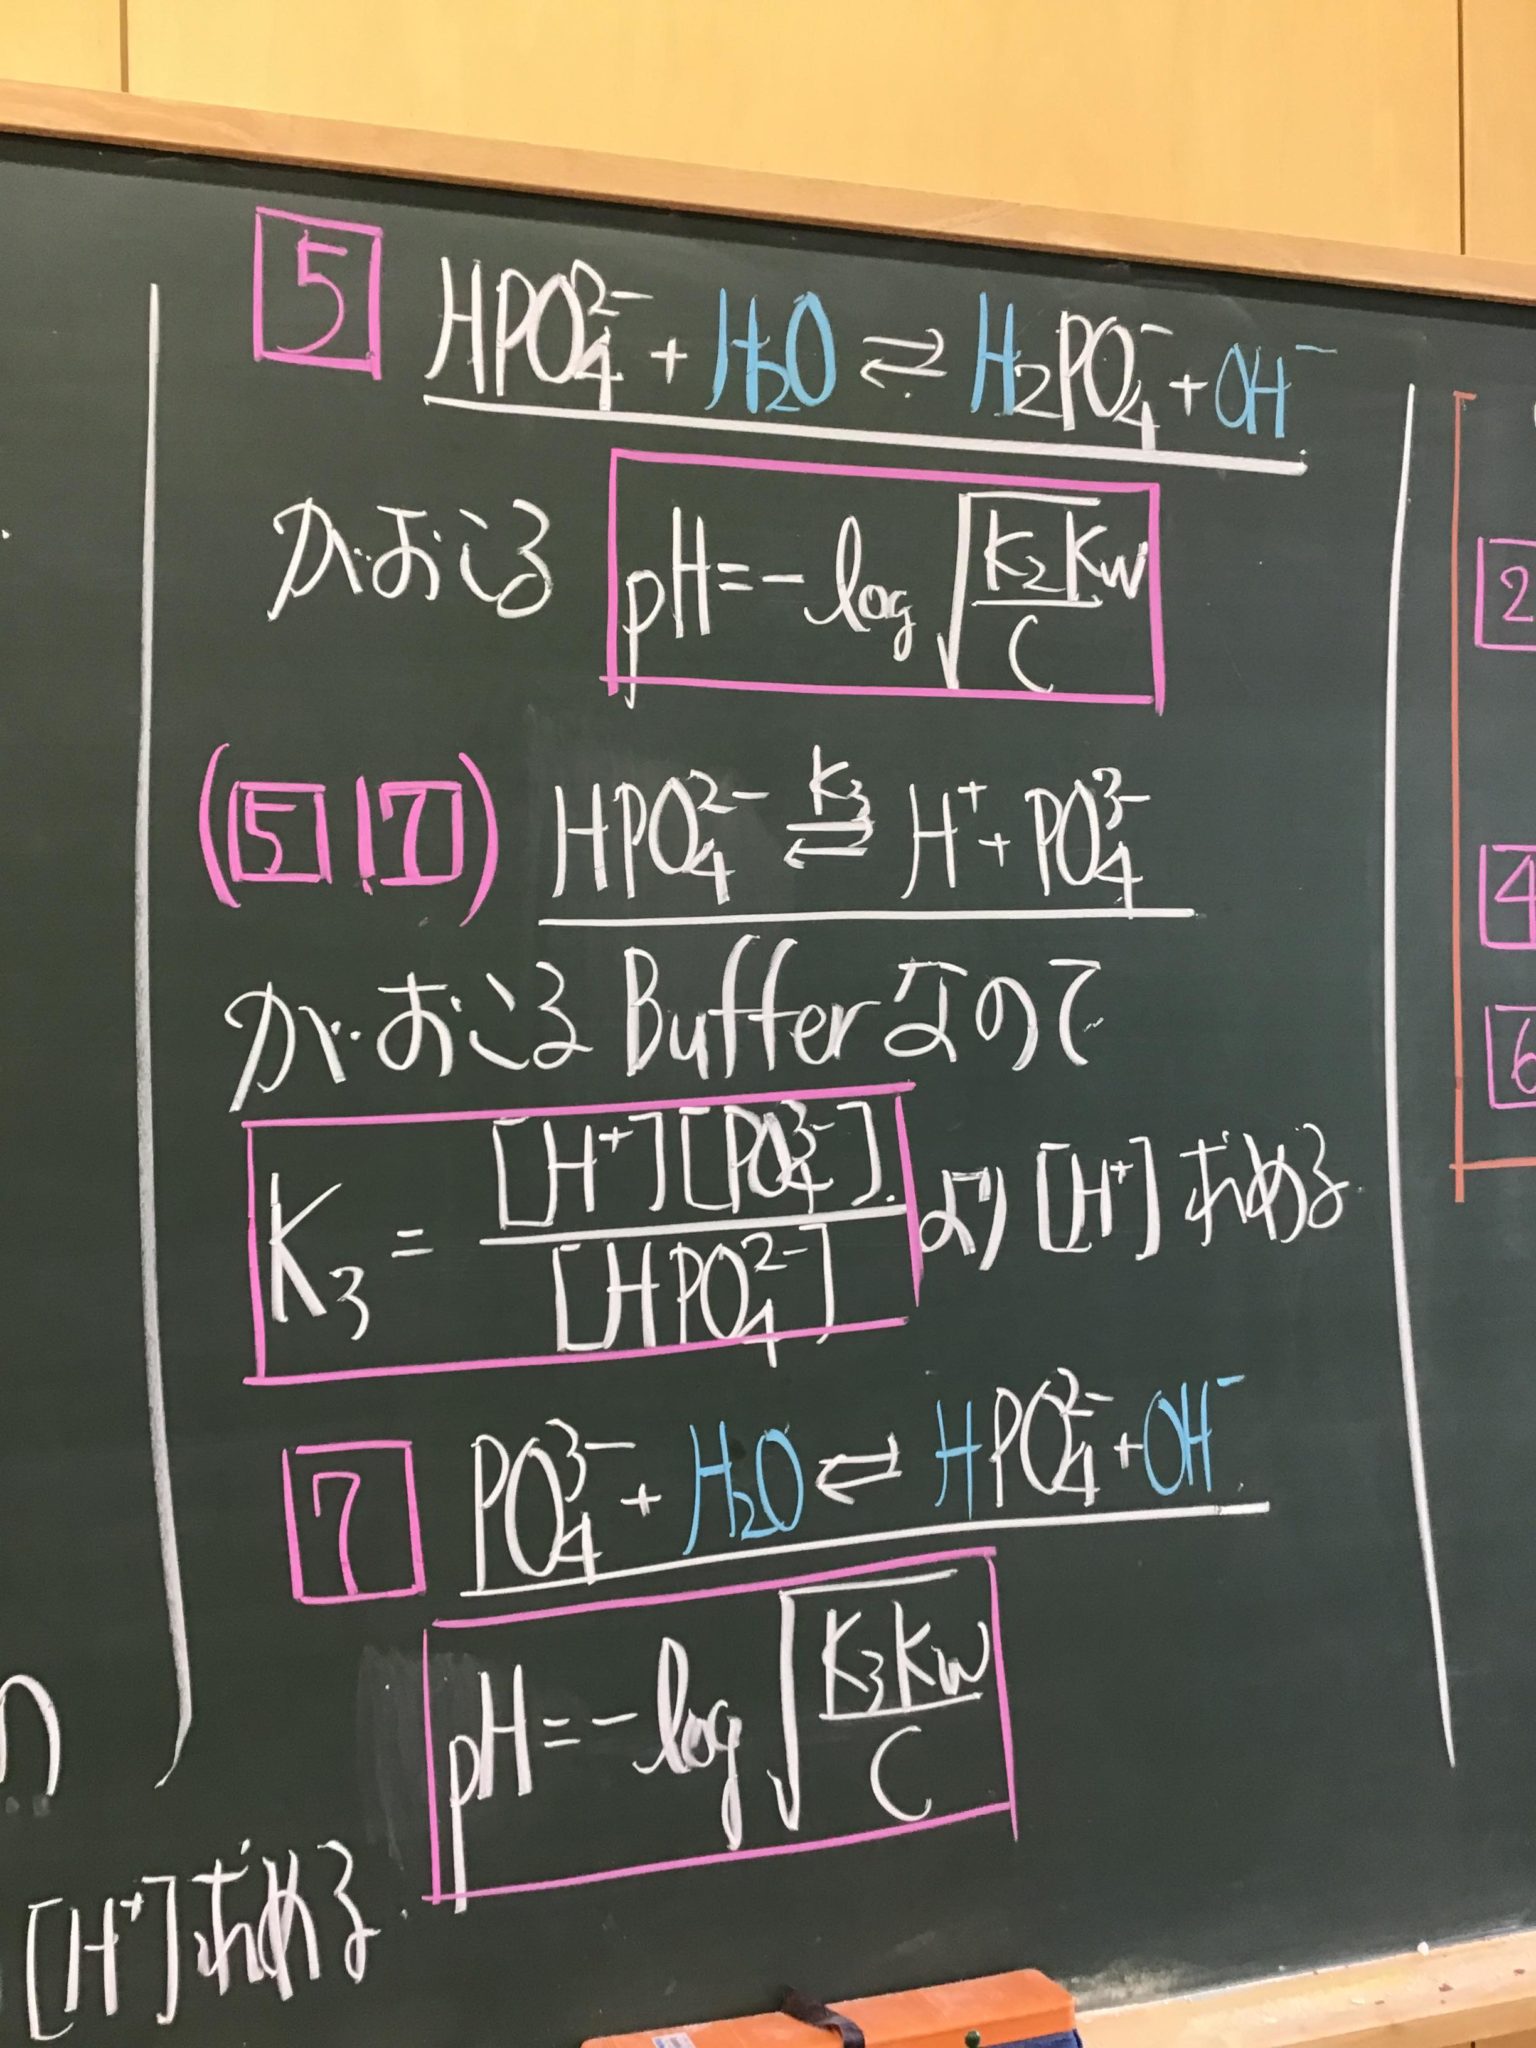 5 HPO₄²⁻ + H₂O ⇄ H₂PO₄⁻ + OH⁻
がおこる pH = -log √(K₂Kw/C)
(5 17) HPO₄²⁻ ⇄ K₃ H⁺ + PO₄³⁻
がおこる Buffer なので
K₃ = [H⁺][PO₄³⁻] / [HPO₄²⁻] より [H⁺] 求める.
7 PO₄³⁻ + H₂O ⇄ HPO₄²⁻ + OH⁻
pH = -log √(K₃Kw/C)
[H⁺] 求める.
2
4
6